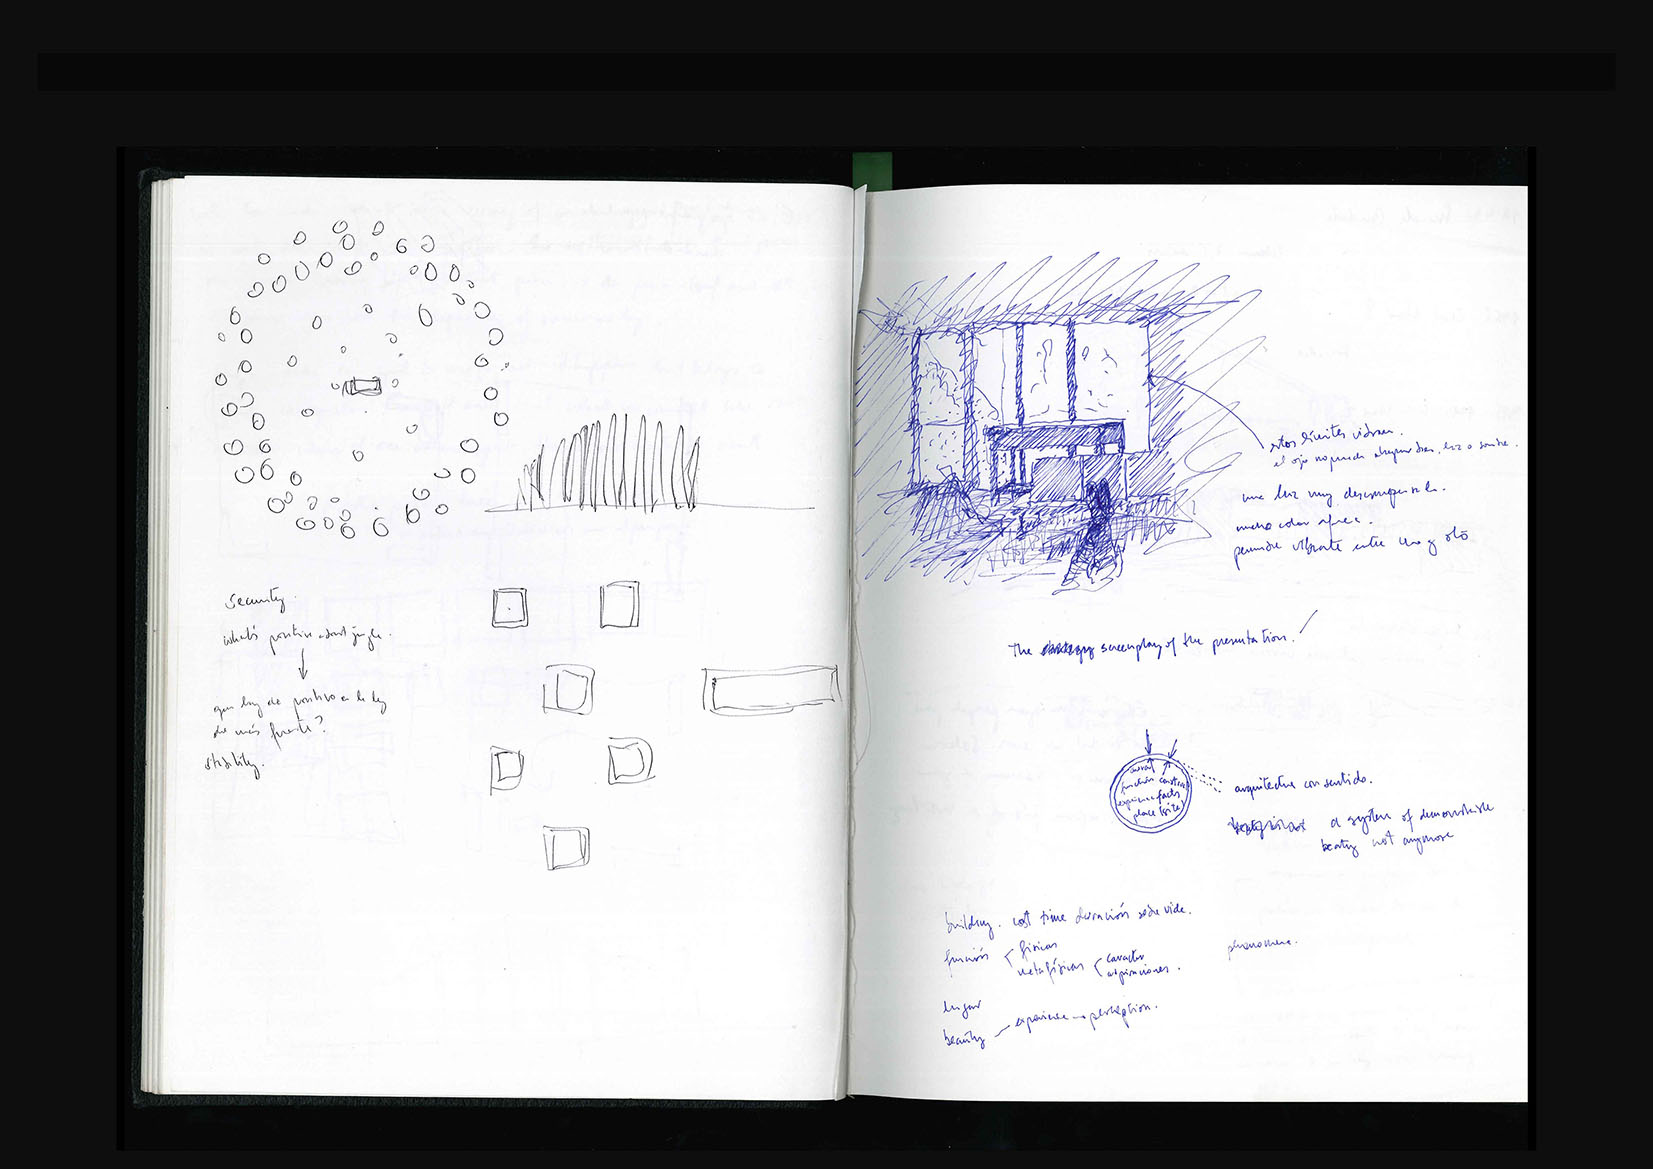 Security.
what's positive about jungle.
que hay de positivo en la ley
de más fuerte?
stability.
estos límites vibran.
el ojo no puede, luz o sombra.
una luz muy descompuesta.
mucho color afuera.
penumbra vibrante entre uno y otro
The screenplay of the presentation.
function construct
experience facts
place (site)
arquitectura con sentido.
a system of demonstrable
beauty not anymore
building. cost time duración sobre vida.
función físicas
metafísicas caracter
aspiraciones.
phenomena.
lugar
beauty experience → perception.